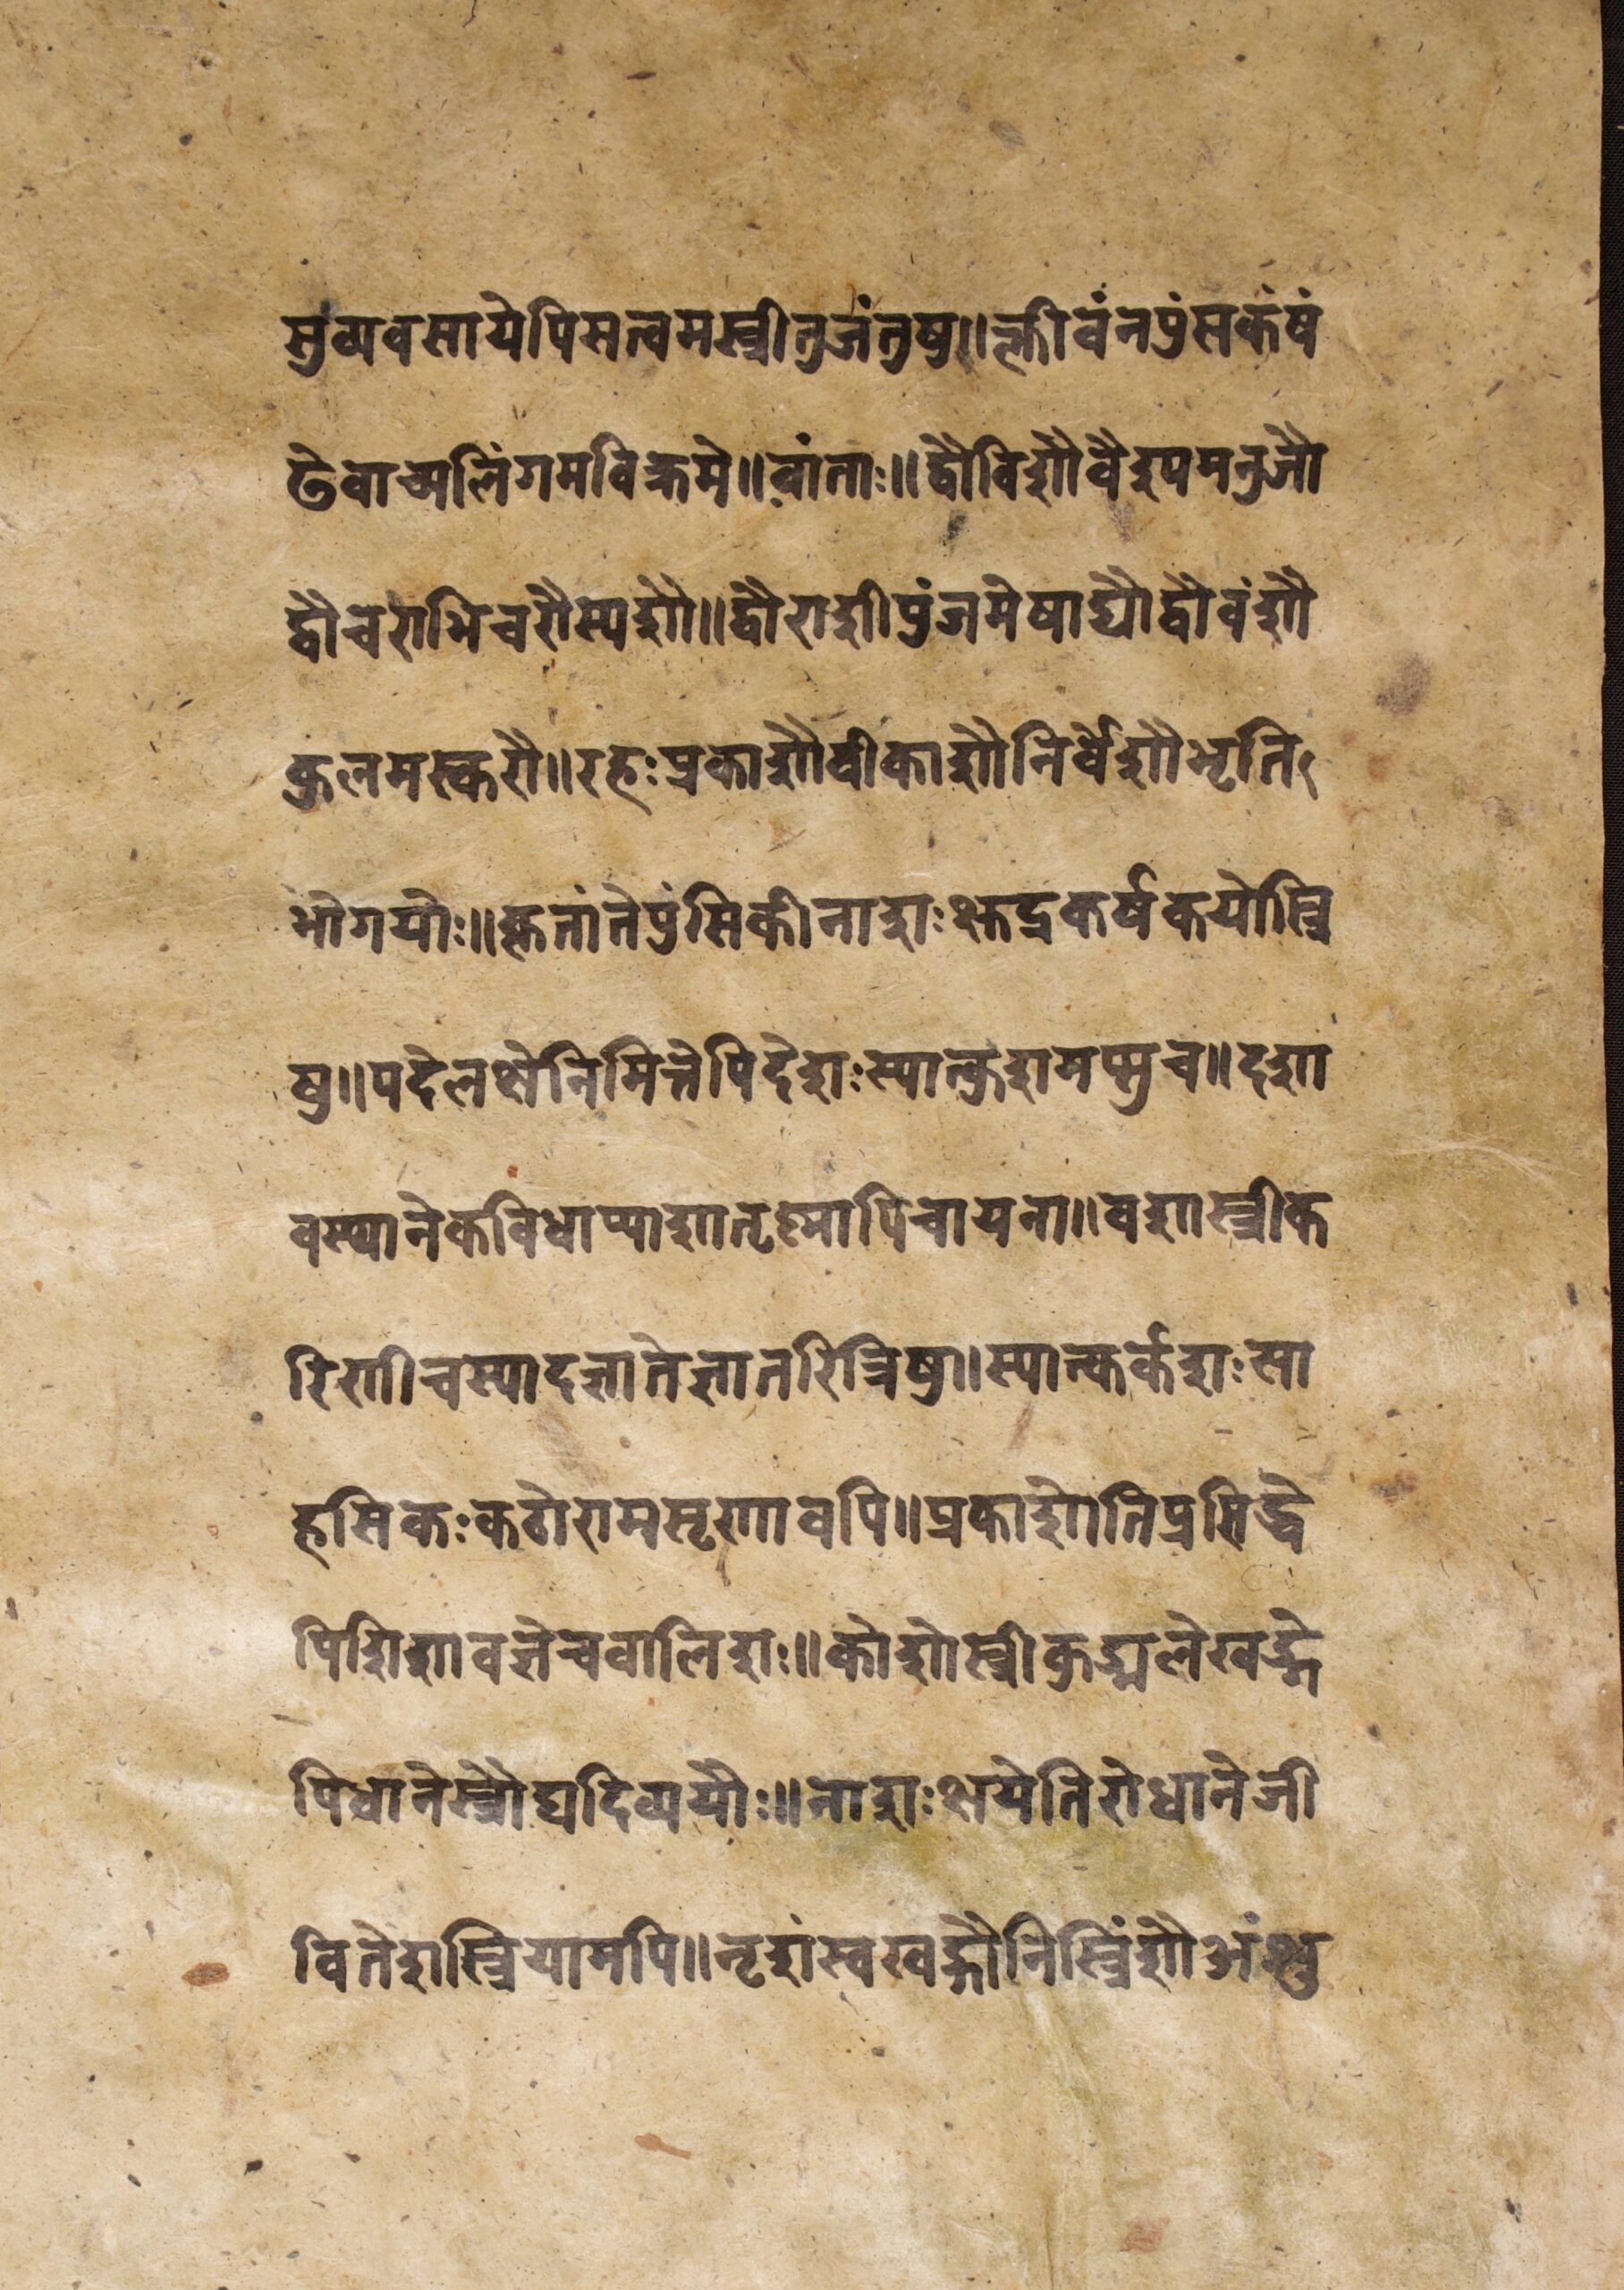 सुव्यवसायेपिसत्वमस्त्रीतुजंतुषु॥क्लीवंनपुंसकंषं
ढेवाच्यलिंगमविक्रमे॥वांताः॥द्वौविशौवैश्यमनुजौ
द्वौचराभिचरौस्पशौ॥द्वौराशीपुंजमेषाद्यौद्वौवंशौ
कुलमस्करौ॥रहःप्रकाशौवीकाशौनिर्वेशौभृति
भोगयोः॥कृतांतेपुंसिकीनाशःक्षुद्रकर्षकयोस्त्रि
षु॥पदेलक्षेनिमित्तेपिदेशःस्यात्कुशमप्सुच॥दशा
वस्थानेकविधाप्याशातृष्णापिचायता॥वशास्त्रीक
रिणीचस्याद्दज्ञातेज्ञातरित्रिषु॥स्यात्कर्कशःसा
हसिकःकठोरामसृणावपि॥प्रकाशोतिप्रसिद्धे
पिशिशावज्ञेचवालिशः॥कोशोस्त्रीकुड्मलेखड्ग
पिधानेस्त्रौघदिव्ययोः॥नाशःक्षयेतिरोधानेजी
वितेशस्त्रियामपि॥नृशंस्वखड्गौनिस्त्रिंशौअंश्यु